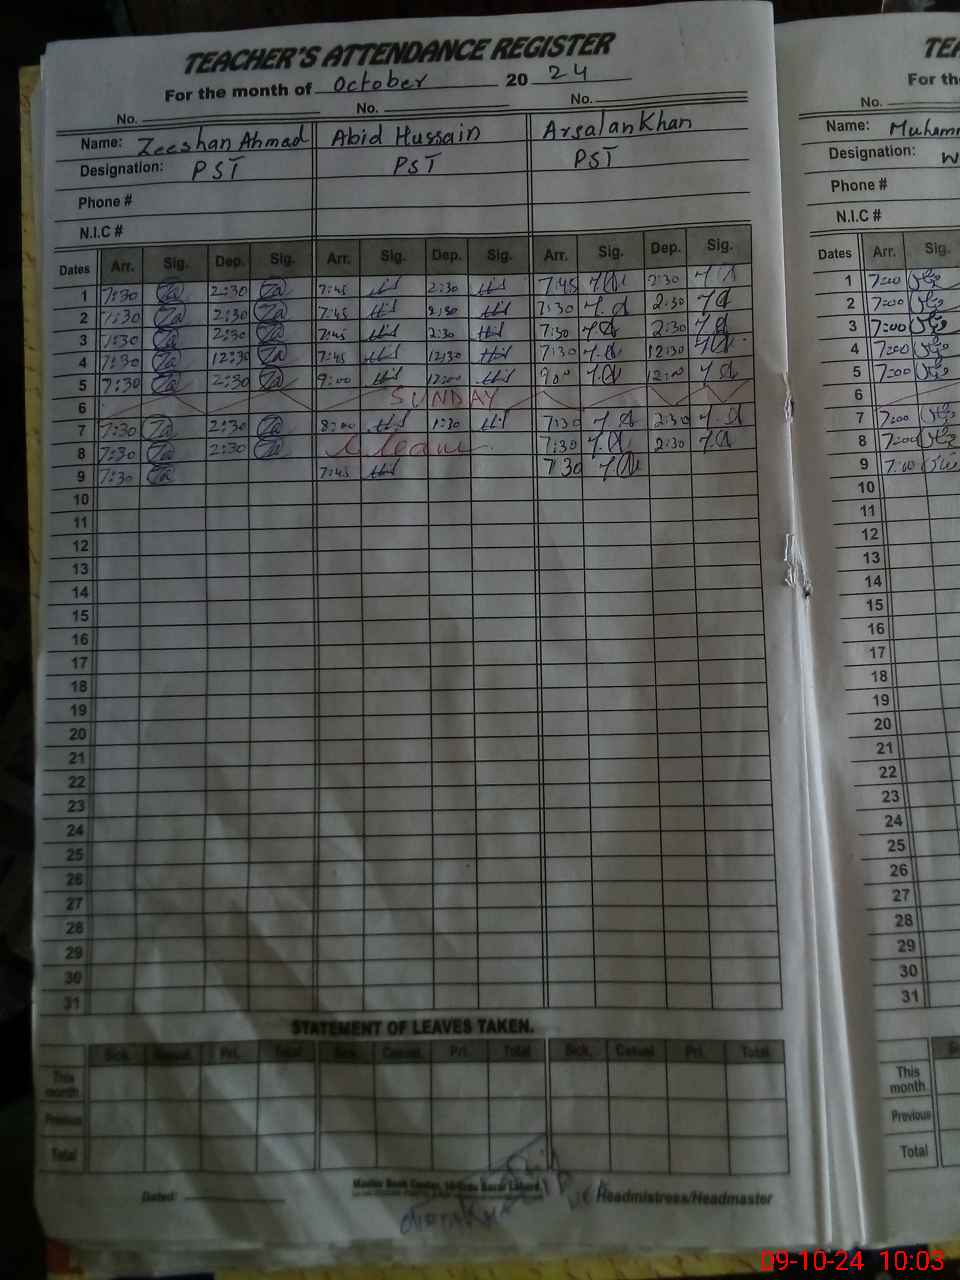 TEACHER'S ATTENDANCE REGISTER
For the month of October 20 24
No. No. No.
Name: Zeeshan Ahmad Abid Hussain Arsalan Khan
Designation: PST PST PST
Phone #
N.I.C #
Dates Arr. Sig. Dep. Sig. Arr. Sig. Dep. Sig. Arr. Sig. Dep. Sig.
1 7:30 2:30 7:45 2:30 7:45 2:30
2 7:30 2:30 7:45 2:30 7:30 2:30
3 7:30 2:30 7:45 2:30 7:30 2:30
4 7:30 12:30 7:45 12:30 7:30 12:30
5 7:30 2:30 9:00 12:00 9:00 12:00
6 SUNDAY
7 7:30 2:30 8:00 1:30 7:30 2:30
8 7:30 2:30 leave 7:30 2:30
9 7:30 7:45 7:30
10
11
12
13
14
15
16
17
18
19
20
21
22
23
24
25
26
27
28
29
30
31
STATEMENT OF LEAVES TAKEN.
Sick. Casual. Pri. Total Sick. Casual. Pri. Total Sick. Casual Pri. Total
This month.
Previous
Total
Dated:
Headmistress/Headmaster
TEA
For the
No.
Name: Muhamm
Designation: W
Phone #
N.I.C #
Dates Arr. Sig.
1 7:00
2 7:00
3 7:00
4 7:00
5 7:00
6
7 7:00
8 7:00
9 7:00
10
11
12
13
14
15
16
17
18
19
20
21
22
23
24
25
26
27
28
29
30
31
This month.
Previous
Total
09-10-24 10:03